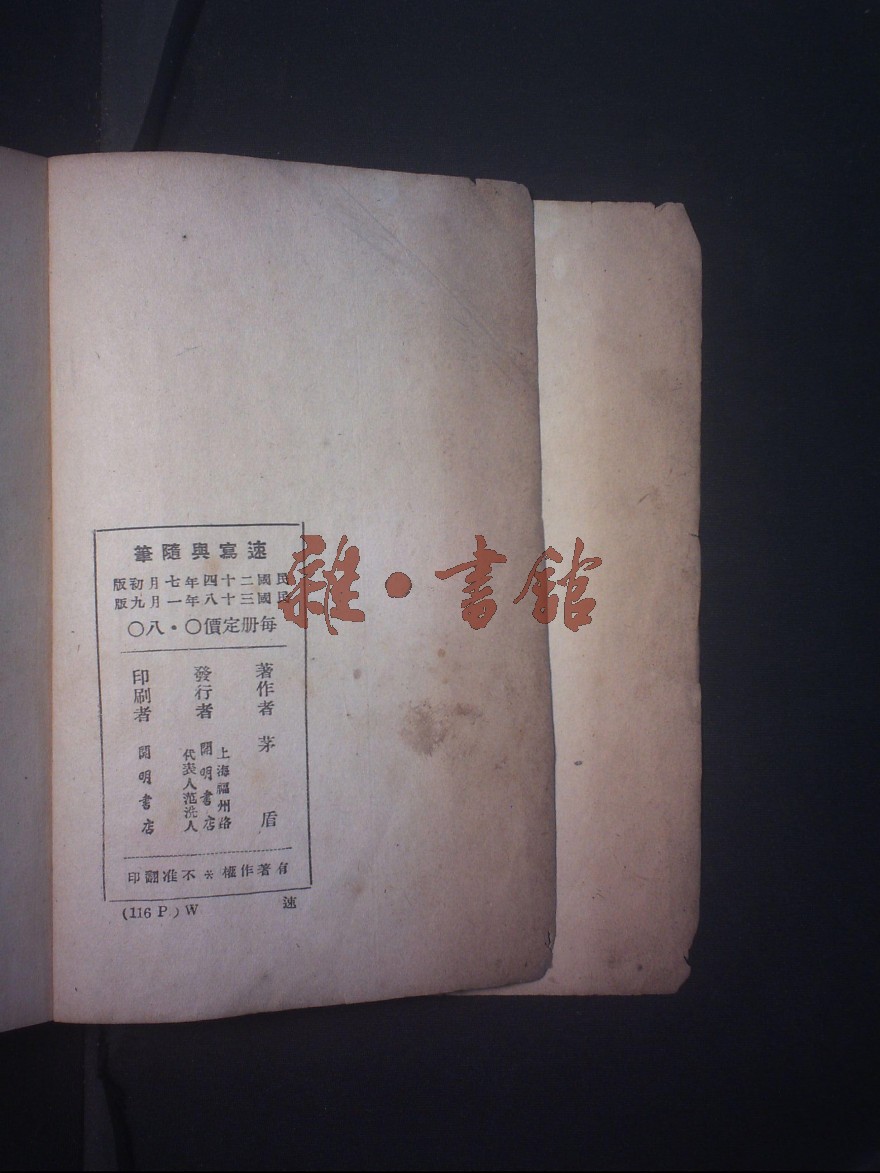 速寫與隨筆
民國二十四年七月初版
民國三十八年一月九版
每册定價〇·八〇
著作者 茅盾
發行者 上海福州路 開明書店 代表人范洗人
印刷者 開明書店
有著作權※不准翻印
(116 P.) W 速
雜·書館